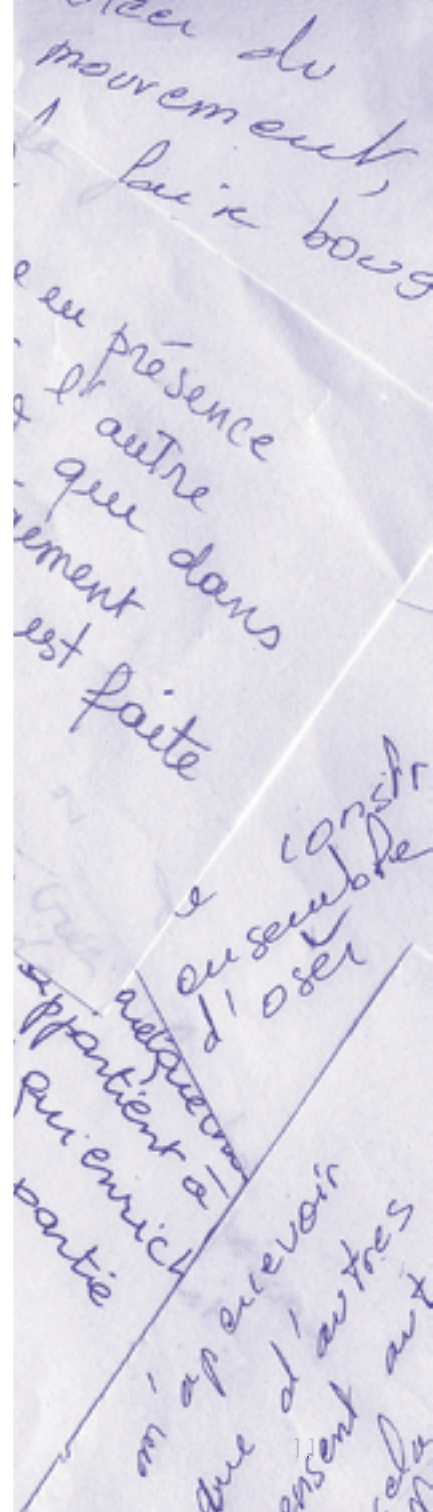 du
mouvement,
faire boug
en présence
l'autre
que dans
ement
est faite
constr
ensemble
d'oser
quelqu'un
appartient à
qui enrich
partie
m'apercevoir
que d'autres
ensent aut
cela
111